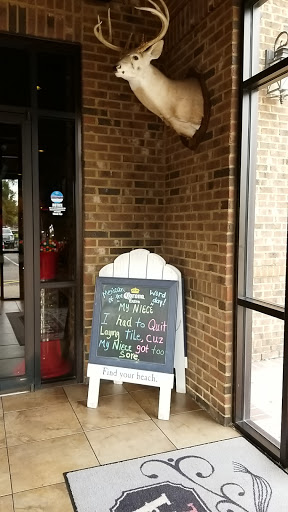 Mexican word
of the Corona day!
Extra
MY NIECE
I had to Quit
Laying tile, cuz
My Niece got too
Sore
Find your beach.